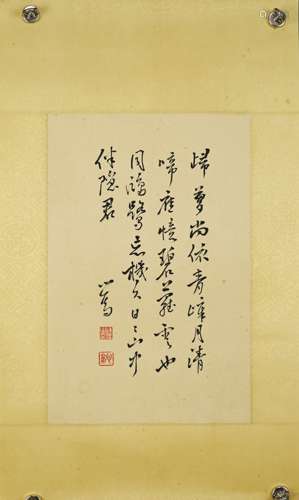 歸夢尚依青嶂月清
啼應憶碧蘿雲也
同鷗鷺忘機久日〻山中
伴隱君
心畬